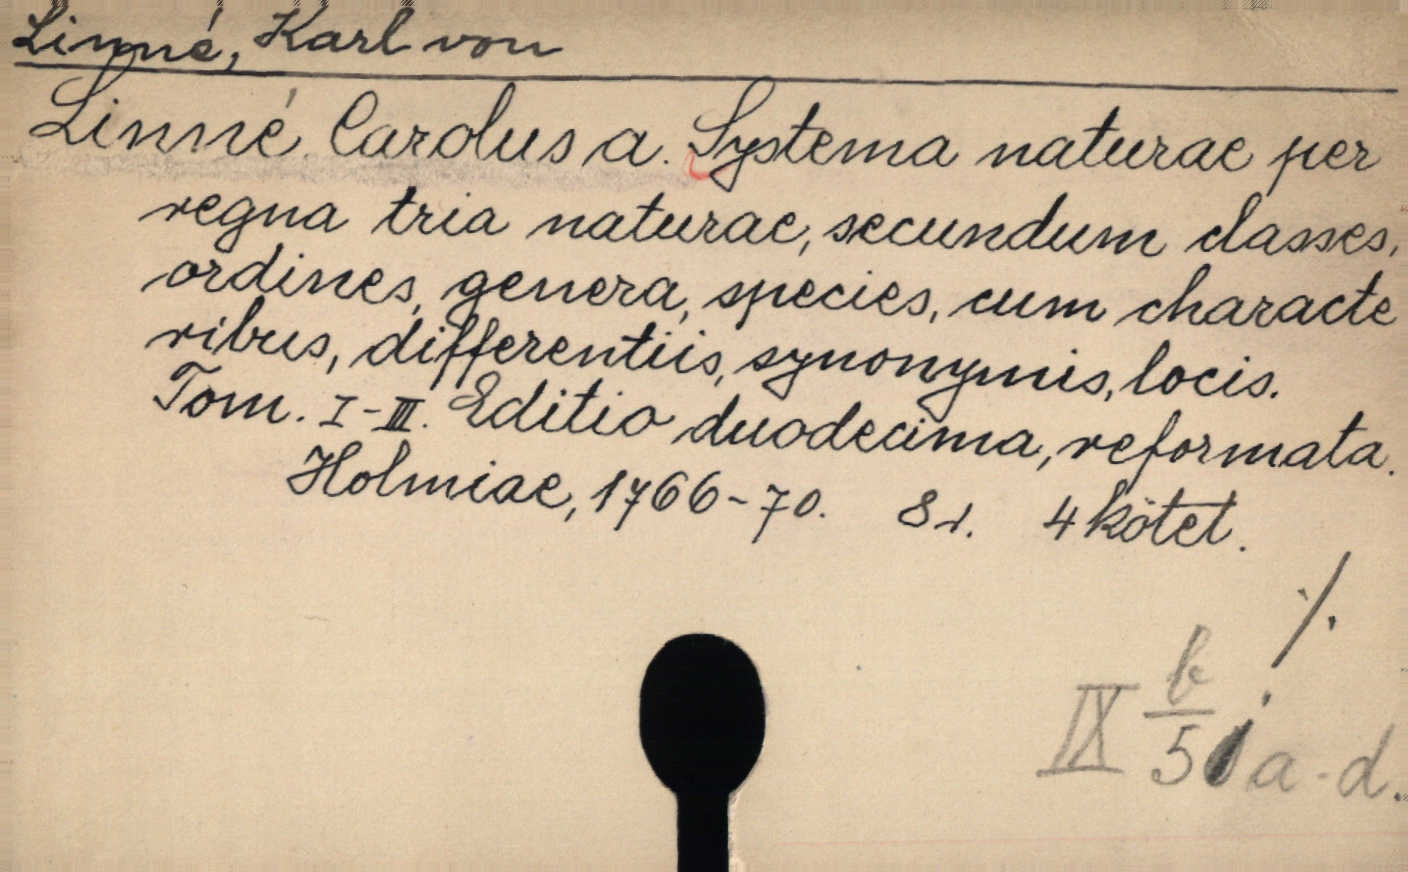 Linné, Karl von
Linné Carolus a. Systema naturae per
regna tria naturae, secundum classes,
ordines, genera, species, cum characte
ribus, differentiis, synonymis, locis.
Tom. I-III. Editio duodecima, reformata.
Holmiae, 1766-70. 8r. 4 kötet.
./.
IX b/5 a-d.